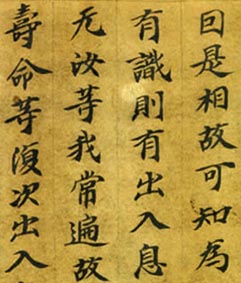 回是相故可知為
有識則有出入息
无汝等我常遍故
壽命等復次出入